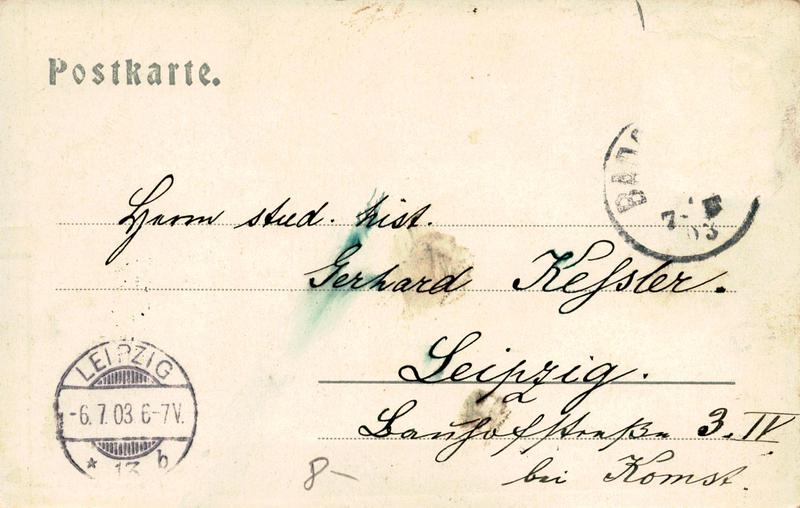 Postkarte.
BAD
7 03
Herrn stud. hist.
Gerhard Keſsler.
LEIPZIG
-6.7.03 6-7V.
* 13 b
Leipzig.
Bauhofstraße 3. IV
bei Komst.
8-